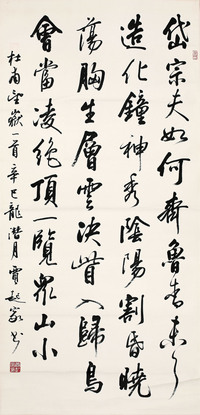 岱宗夫如何齊魯青未了
造化鐘神秀陰陽割昏曉
蕩胸生層雲決眥入歸鳥
會當凌絕頂一覽眾山小
杜甫望嶽一首辛巳龍潛月